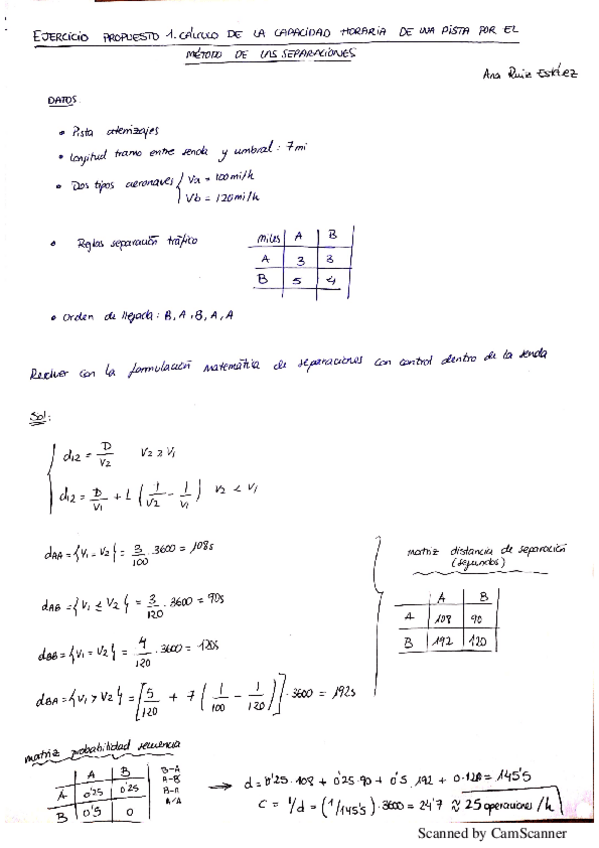 EJERCICIO PROPUESTO 1. CÁLCULO DE LA CAPACIDAD HORARIA DE UNA PISTA POR EL
MÉTODO DE LAS SEPARACIONES
Ana Ruiz Estévez
DATOS:
• Pista aterrizajes
• Longitud tramo entre senda y umbral: 7 mi
• Dos tipos aeronaves { Va = 100 mi/h
Vb = 120 mi/h
• Reglas separación tráfico
millas A B
A 3 3
B 5 4
• Orden de llegada: B, A, B, A, A
Resolver con la formulación matemática de separaciones con control dentro de la senda
Sol:
d12 = D/V2 V2 ≥ V1
d12 = D/V1 + L (1/V2 - 1/V1) V2 < V1
dAA = {V1 = V2} = 3/100 · 3600 = 108s
dAB = {V1 ≤ V2} = 3/120 · 3600 = 90s
dBB = {V1 = V2} = 4/120 · 3600 = 120s
dBA = {V1 > V2} = [5/120 + 7 (1/100 - 1/120)] · 3600 = 192s
matriz distancia de separación
(segundos)
A B
A 108 90
B 192 120
matriz probabilidad secuencia
A B
A 0'25 0'25
B 0'5 0
B-A
A-B
B-A
A-A
→ d = 0'25 · 108 + 0'25 · 90 + 0'5 · 192 + 0 · 120 = 145'5
C = 1/d = (1/145'5) · 3600 = 24'7 ≈ 25 operaciones/h
Scanned by CamScanner